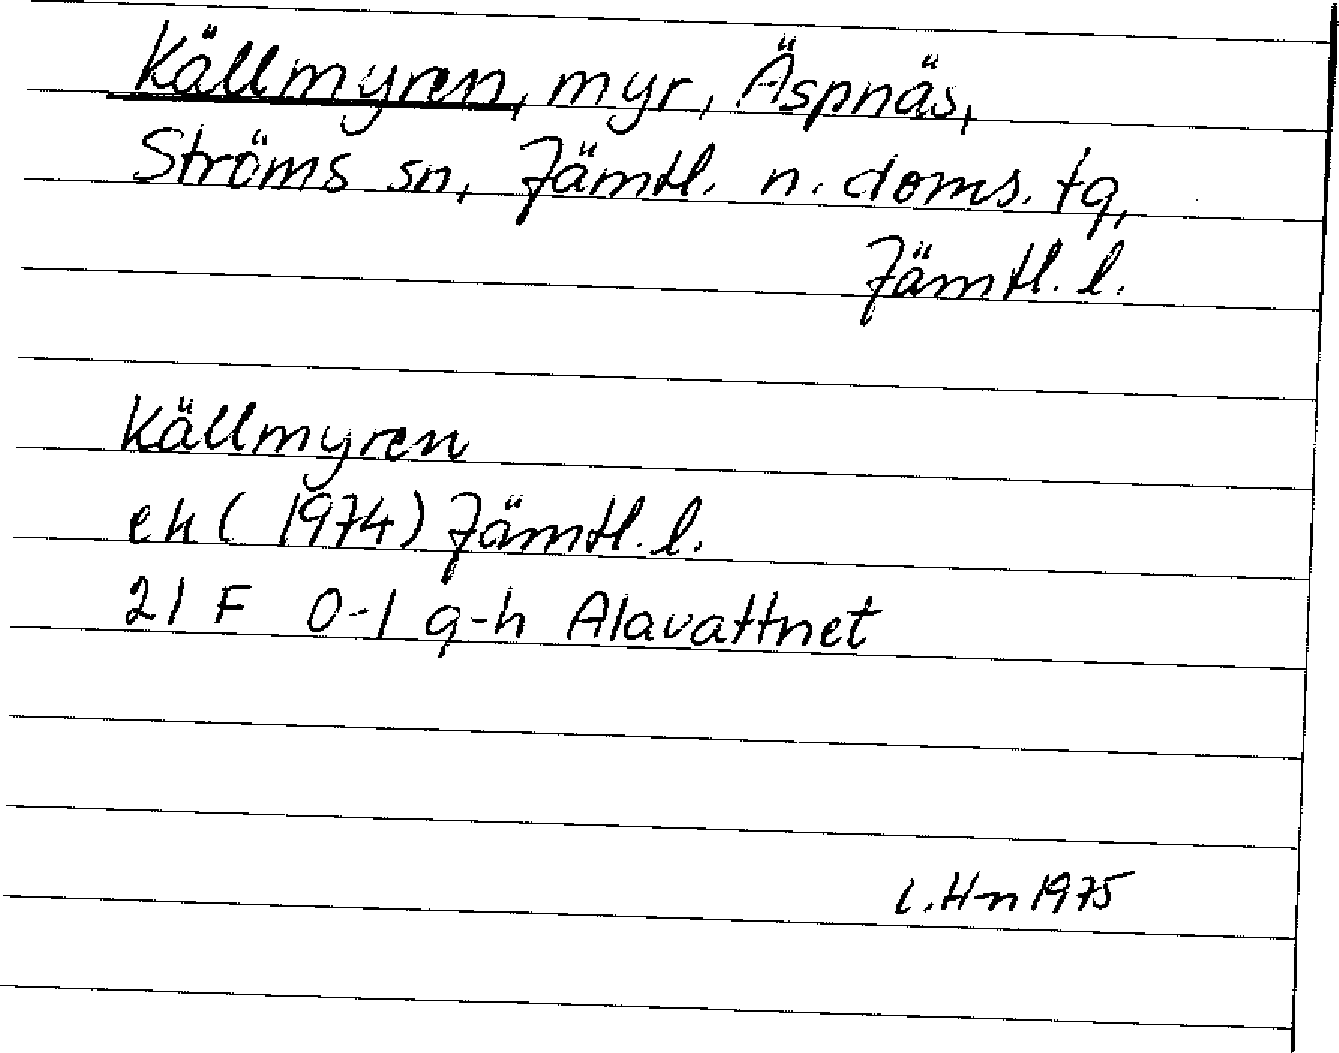 Källmyren, myr, Äspnäs,
Ströms sn, Jämtl. n. doms. tg,
Jämtl. l.
Källmyren
ek (1974) Jämtl. l.
21 F 0-1 g-h Alavattnet
L. Hn 1975